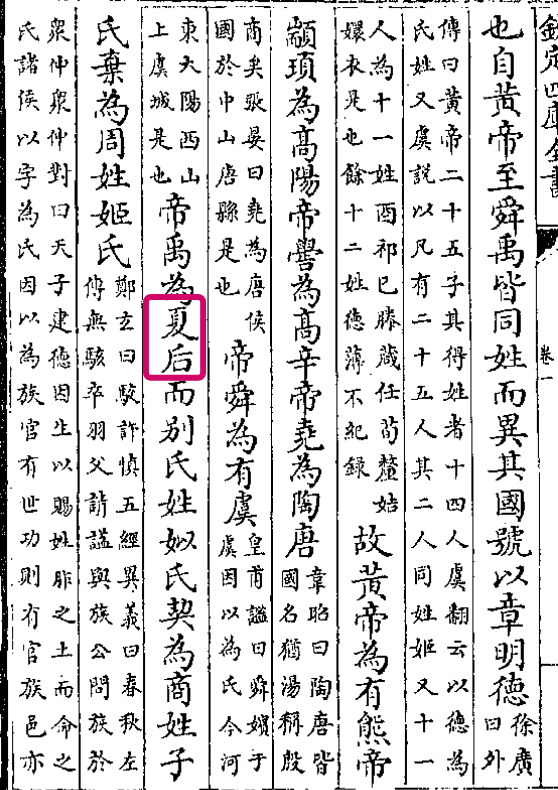 欽定四庫全書
卷一
也自黃帝至舜禹皆同姓而異其國號以章明德徐廣
曰外
傳曰黃帝二十五子其得姓者十四人虞翻云以德為
氏姓又虞說以凡有二十五人其二人同姓姬又十一
人為十一姓酉祁巳滕葴任荀釐姞
嬛衣是也餘十二姓德薄不紀錄
故黃帝為有熊帝
顓頊為高陽帝嚳為高辛帝堯為陶唐韋昭曰陶唐皆
國名猶湯稱殷
商矣張晏曰堯為唐侯
國於中山唐縣是也
帝舜為有虞皇甫謐曰舜嬪于
虞因以為氏今河
東大陽西山
上虞城是也
帝禹為夏后而別氏姓姒氏契為商姓子
氏棄為周姓姬氏鄭玄曰駮許慎五經異義曰春秋左
傳無駭卒羽父請謚與族公問族於
衆仲衆仲對曰天子建德因生以賜姓胙之土而命之
氏諸侯以字為氏因以為族官有世功則有官族邑亦